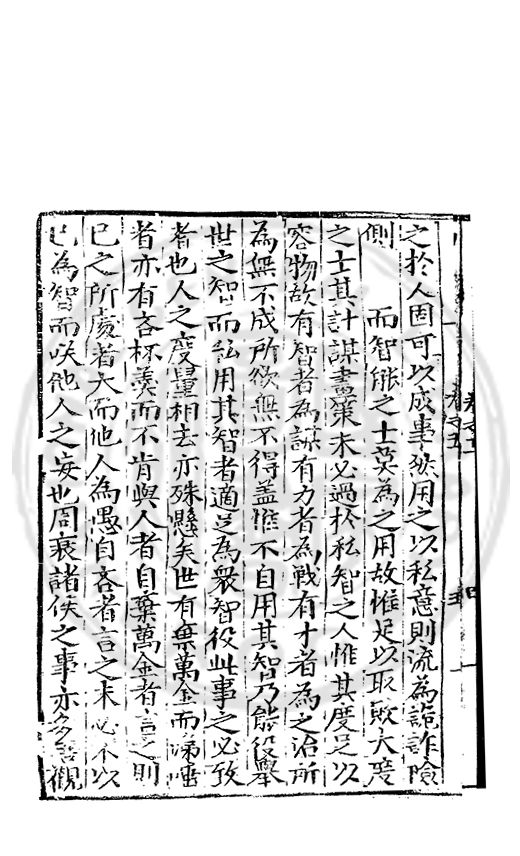 之於人固可以成事然用之以私意則流為詭詐險
側　　　而智能之士莫為之用故惟足以取敗大度
之士其計謀畫策未必過於私智之人惟其度足以
容物故有智者為謀有力者為戰有才者為之治所
為無不成所欲無不得蓋惟不自用其智乃能役舉
世之智而私用其智者適足為衆智役此事之必致
者也人之度量相去亦殊懸矣世有棄萬金而涕唾
者亦有吝杯羹而不肯與人者自棄萬金者言之則
已之所處者大而他人為愚自吝者言之未必不以
已為智而咲他人之妄也周衰諸侯之事亦多善觀